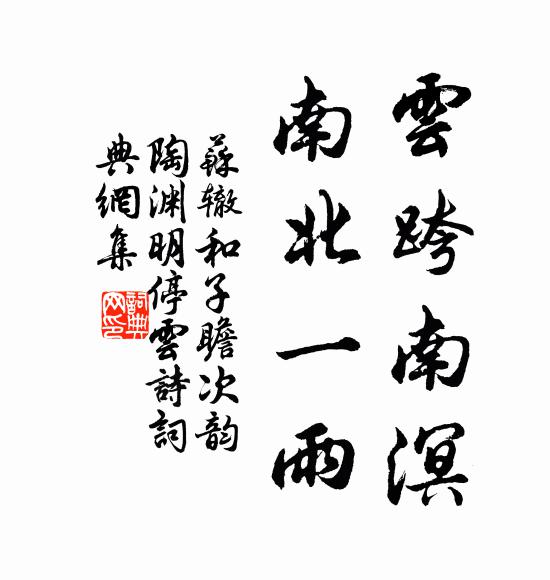 雲跨南溟
南北一雨
蘇辙和子瞻次韵
陶渊明停雲詩詞
典網集
詞典网印